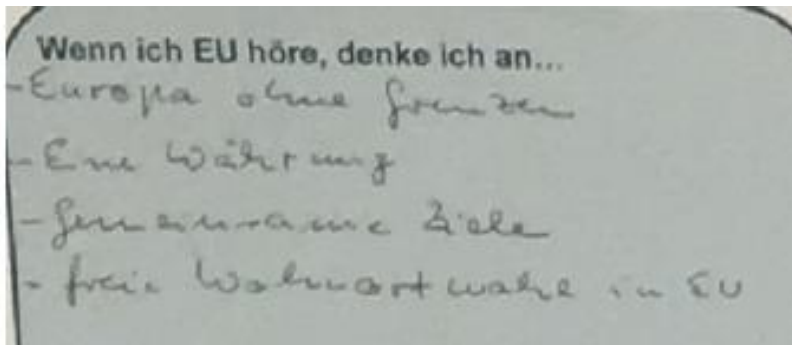 Wenn ich EU höre, denke ich an...
- Europa ohne Grenzen
- Eine Währung
- Gemeinsame Ziele
- freie Wohnortwahl in EU